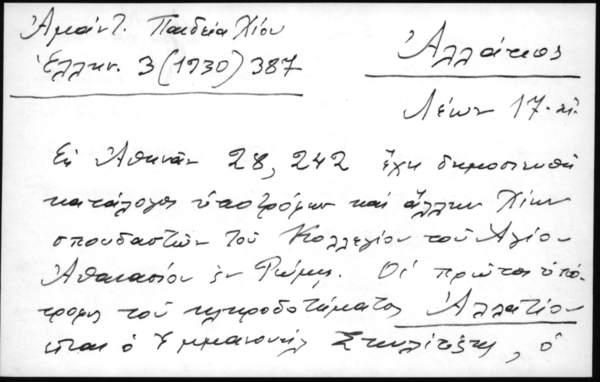 Ἀμάντ. Παιδεία Χίου
Ἑλλην. 3 (1930) 387
Ἀλλάτιος
Λέων 17. αἰ.
Ἐν Ἀθηνᾶν 28, 242 ἔχει δημοσιευθῆ
κατάλογος ὑποτρόφων καὶ ἄλλων Χίων
σπουδαστῶν τοῦ Κολλεγίου τοῦ Ἁγίου
Ἀθανασίου ἐν Ρώμῃ. Οἱ πρῶτοι ὑπό-
τροφοι τοῦ κληροδοτήματος Ἀλλατίου
εἶναι ὁ Ἐμμανουὴλ , ὁ